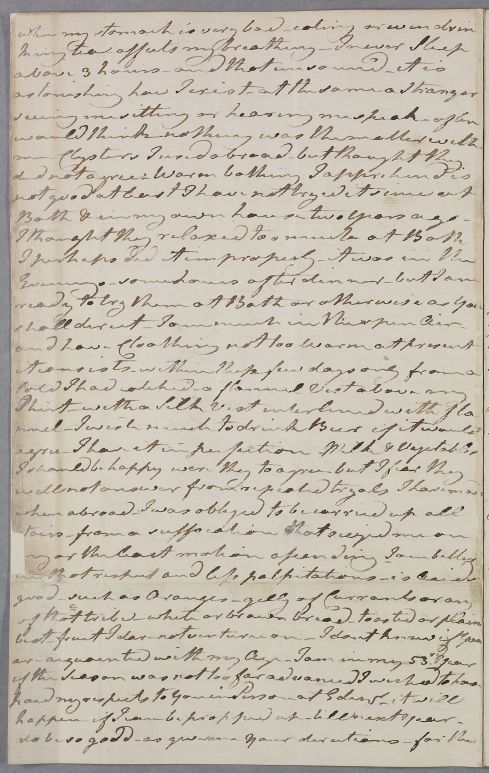 when my stomach is very bad - eating or even drin
king tea affects my breathing - I never Sleep
above 3 hours - and that unsound - it is
astonishing how I exist - at the same a stranger
seeing me sitting or hearing me speak - often
would think nothing was the matter with
me Clysters I used abroad - but thought they
did not agree - Warm bathing I apprehend is
not good at least I have not tryed it since at
Bath & in my own house two years ago -
I thought they relaxed too much at Bath
I perhaps did it improperly - it was in the
Evenings - some hours after dinner - but I am
ready to try them at Bath or otherwise as You
shall direct - I am much in the open Air
and have Cloathing not too warm at present
it consists within these few days only from a
Cold I had catched - a flannel Vest above my
Shirt - with a Silk Vest interlined with fla
nnel I wish much to drink Beer if it would
agree - I have it in perfection Milk & Vegetables
I should be happy were they to agree but I fear they
will not answer from repeated tryals I have made
when abroad I was obliged to be carried up all
stairs - from a suffocation that seized me on
or the least motion ascending - I am better
in that respect and less palpitations - is acids
good such as Oranges - gelly of Currants or any
of that tribe - white or brown bread - toasted or plain
but fruit I dar not venture on - I dont know if You
ar acquainted with my Age - I am in my 53rd Year
if the Season was not too far advanced I wished to have
paid my respects to You in Person at Edinr - it will
happen if I can be propped up till next Year -
do be so good - as give me Your directions - for the